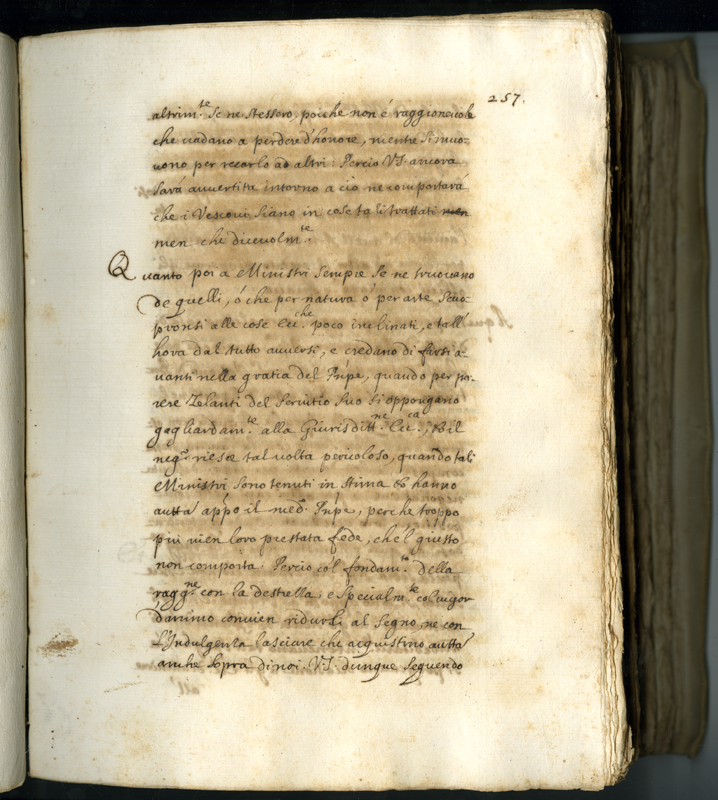 257.
altrim.te se ne stessero, poiche non é raggioneuole
che uadano a perdere d'honore, mentre si muo-
uono per recarlo ad altri: Perciò V.S. ancora
sarà auuertita intorno a ciò ne comportarà
che i Vescoui siano in cose tali trattati men
men che diceuolm.te
Quanto poi a Ministri sempre se ne truouano
de quelli, ó che per natura ó per arte sono
pronti alle cose Ecc.che poco inclinati, e tall'
hora dal tutto auuersi, e credano di farsi a-
uanti nella gratia del Prípe, quando per pa-
rere Zelanti del seruitio suo si oppongano
gagliardam.te alla Giurisditt.ne Ecc.ca, & il
neg.o riesce tal uolta pericoloso, quando tali
Ministri sono tenuti in stima & hanno
autta' appo il med.o Prípe, perche troppo
piu uien loro prestata fede, che'l giusto
non comporta Perciò col fondam.to della
ragg.ne con la destrezza e specialm.te col uigor
d'animo conuien ridurli al segno, ne con
l'Indulgenza lasciare che acquistino autta'
anche sopra di noi. V.S. dunque seguendo
all'